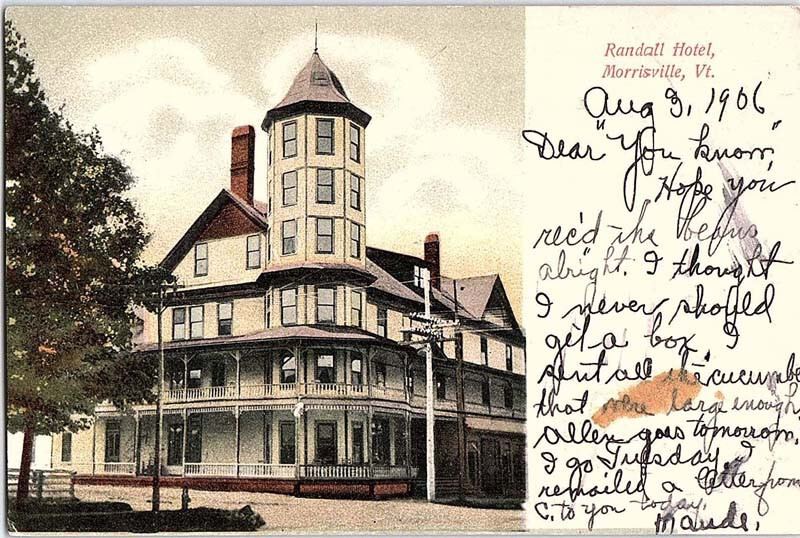 Randall Hotel,
Morrisville, Vt.
Aug 3, 1906
Dear "You know,"
Hope you
rec'd the beans
alright. I thought
I never should
get a box I
sent all the cucumbe
that were large enough
Allen goes tomorrow,
I go Tuesday. I
remailed a letter from
C. to you today.
Maude.